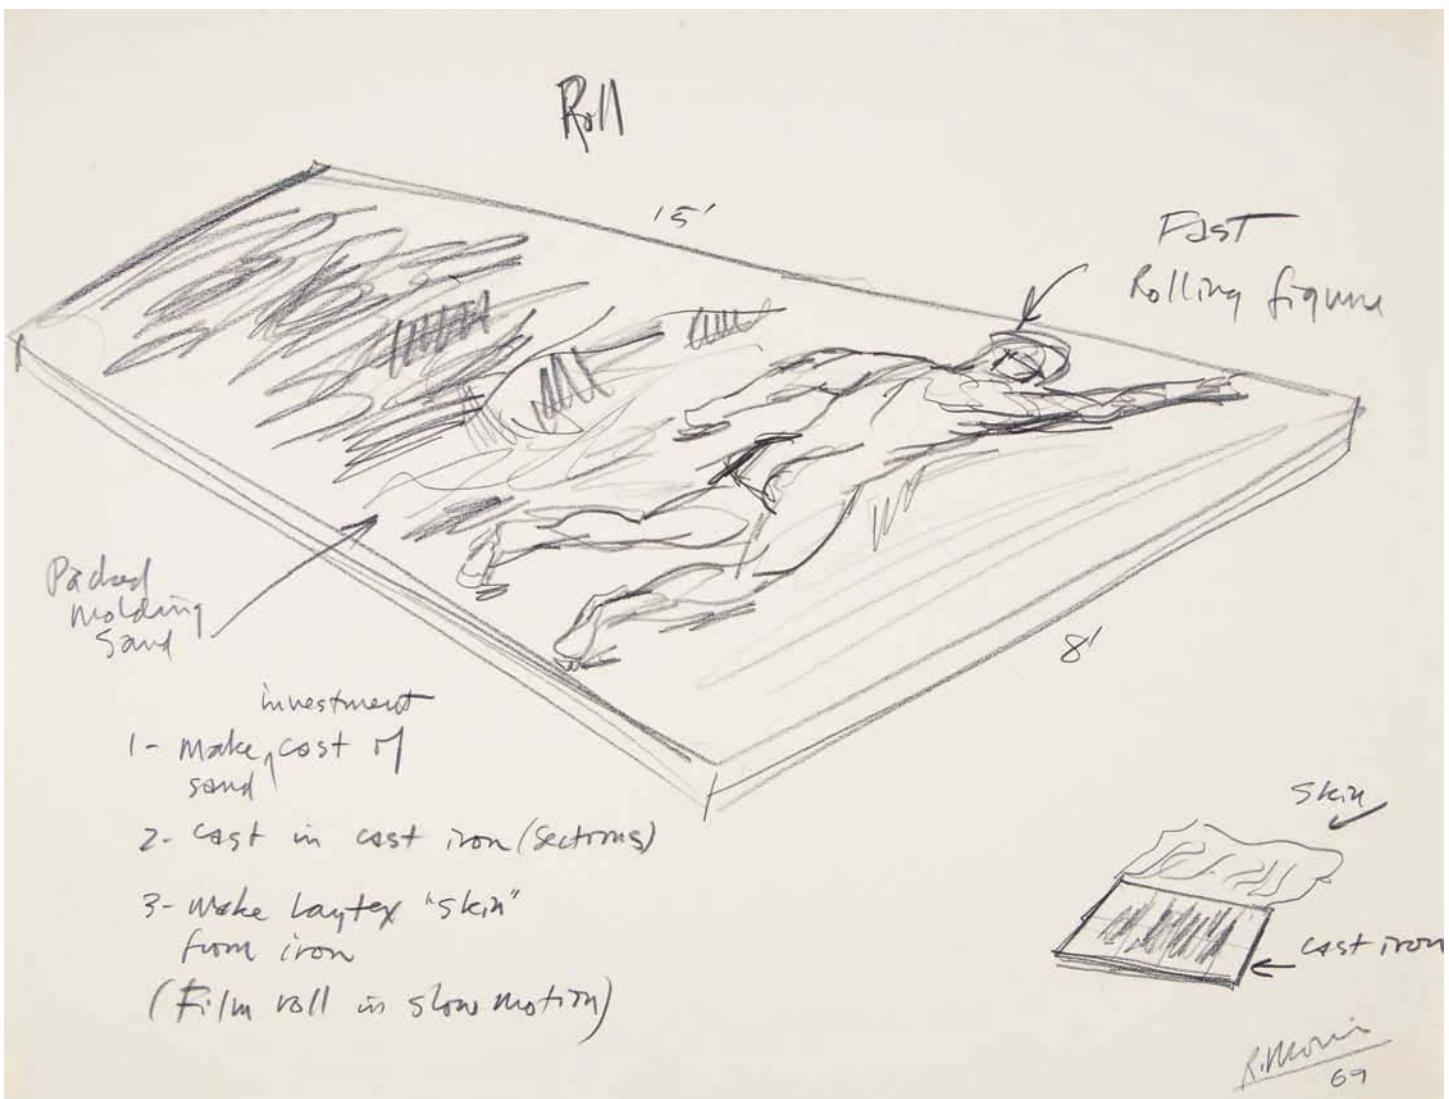 Roll
15'
FAST
Rolling figure
Packed
molding
sand
8'
investment
1- make ^ cast of
sand
2- cast in cast iron (sections)
3- make Laytex "skin"
from iron
(Film roll in slow motion)
skin
cast iron
R. Morris
69